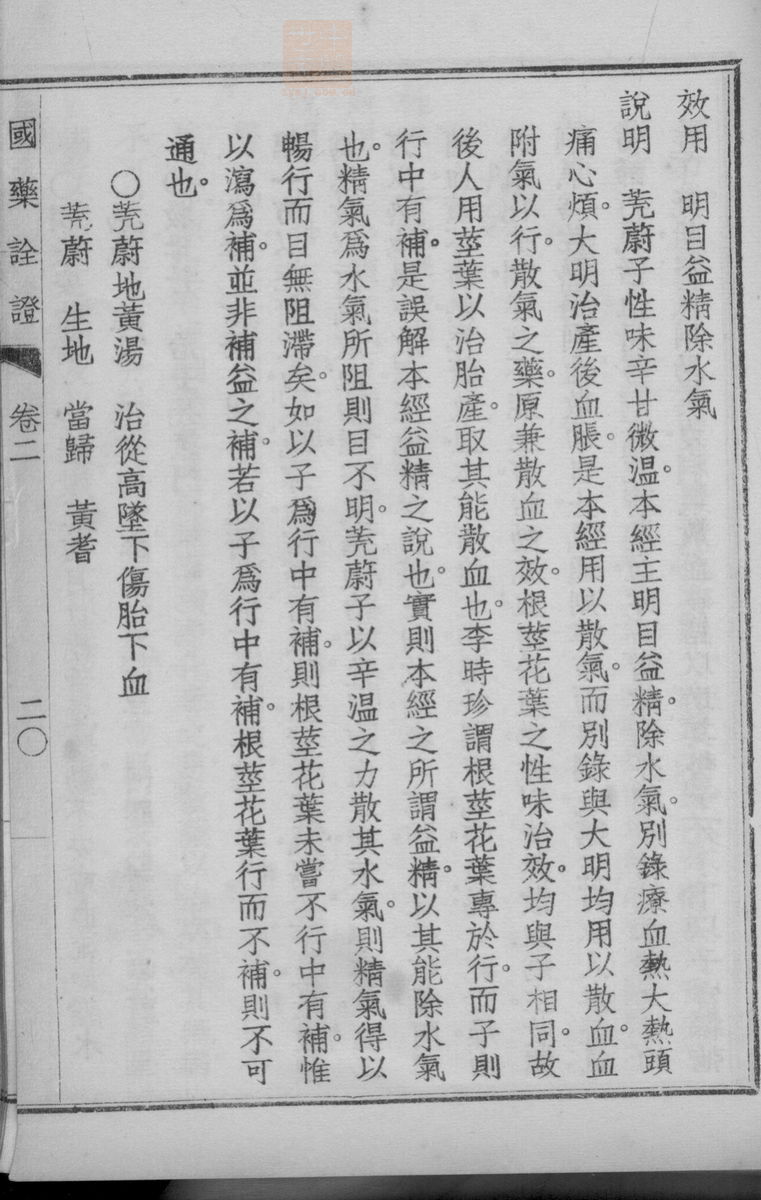 效用　明目益精除水氣
說明　茺蔚子性味辛甘微溫。本經主明目益精。除水氣。別錄療血熱大熱頭
痛心煩。大明治產後血脹。是本經用以散氣。而別錄與大明均用以散血。血
附氣以行。散氣之藥。原兼散血之效。根莖花葉之性味治效。均與子相同。故
後人用莖葉以治胎產。取其能散血也。李時珍謂根莖花葉專於行。而子則
行中有補。是誤解本經益精之說也。實則本經之所謂益精。以其能除水氣
也。精氣爲水氣所阻則目不明。茺蔚子以辛温之力散其水氣。則精氣得以
暢行而目無阻滯矣。如以子爲行中有補。則根莖花葉未嘗不行中有補。惟
以瀉爲補。並非補益之補。若以子爲行中有補。根莖花葉行而不補。則不可
通也。
〇茺蔚地黃湯　治從高墜下傷胎下血
茺蔚　生地　當歸　黃耆
國藥詮證　卷二　二〇